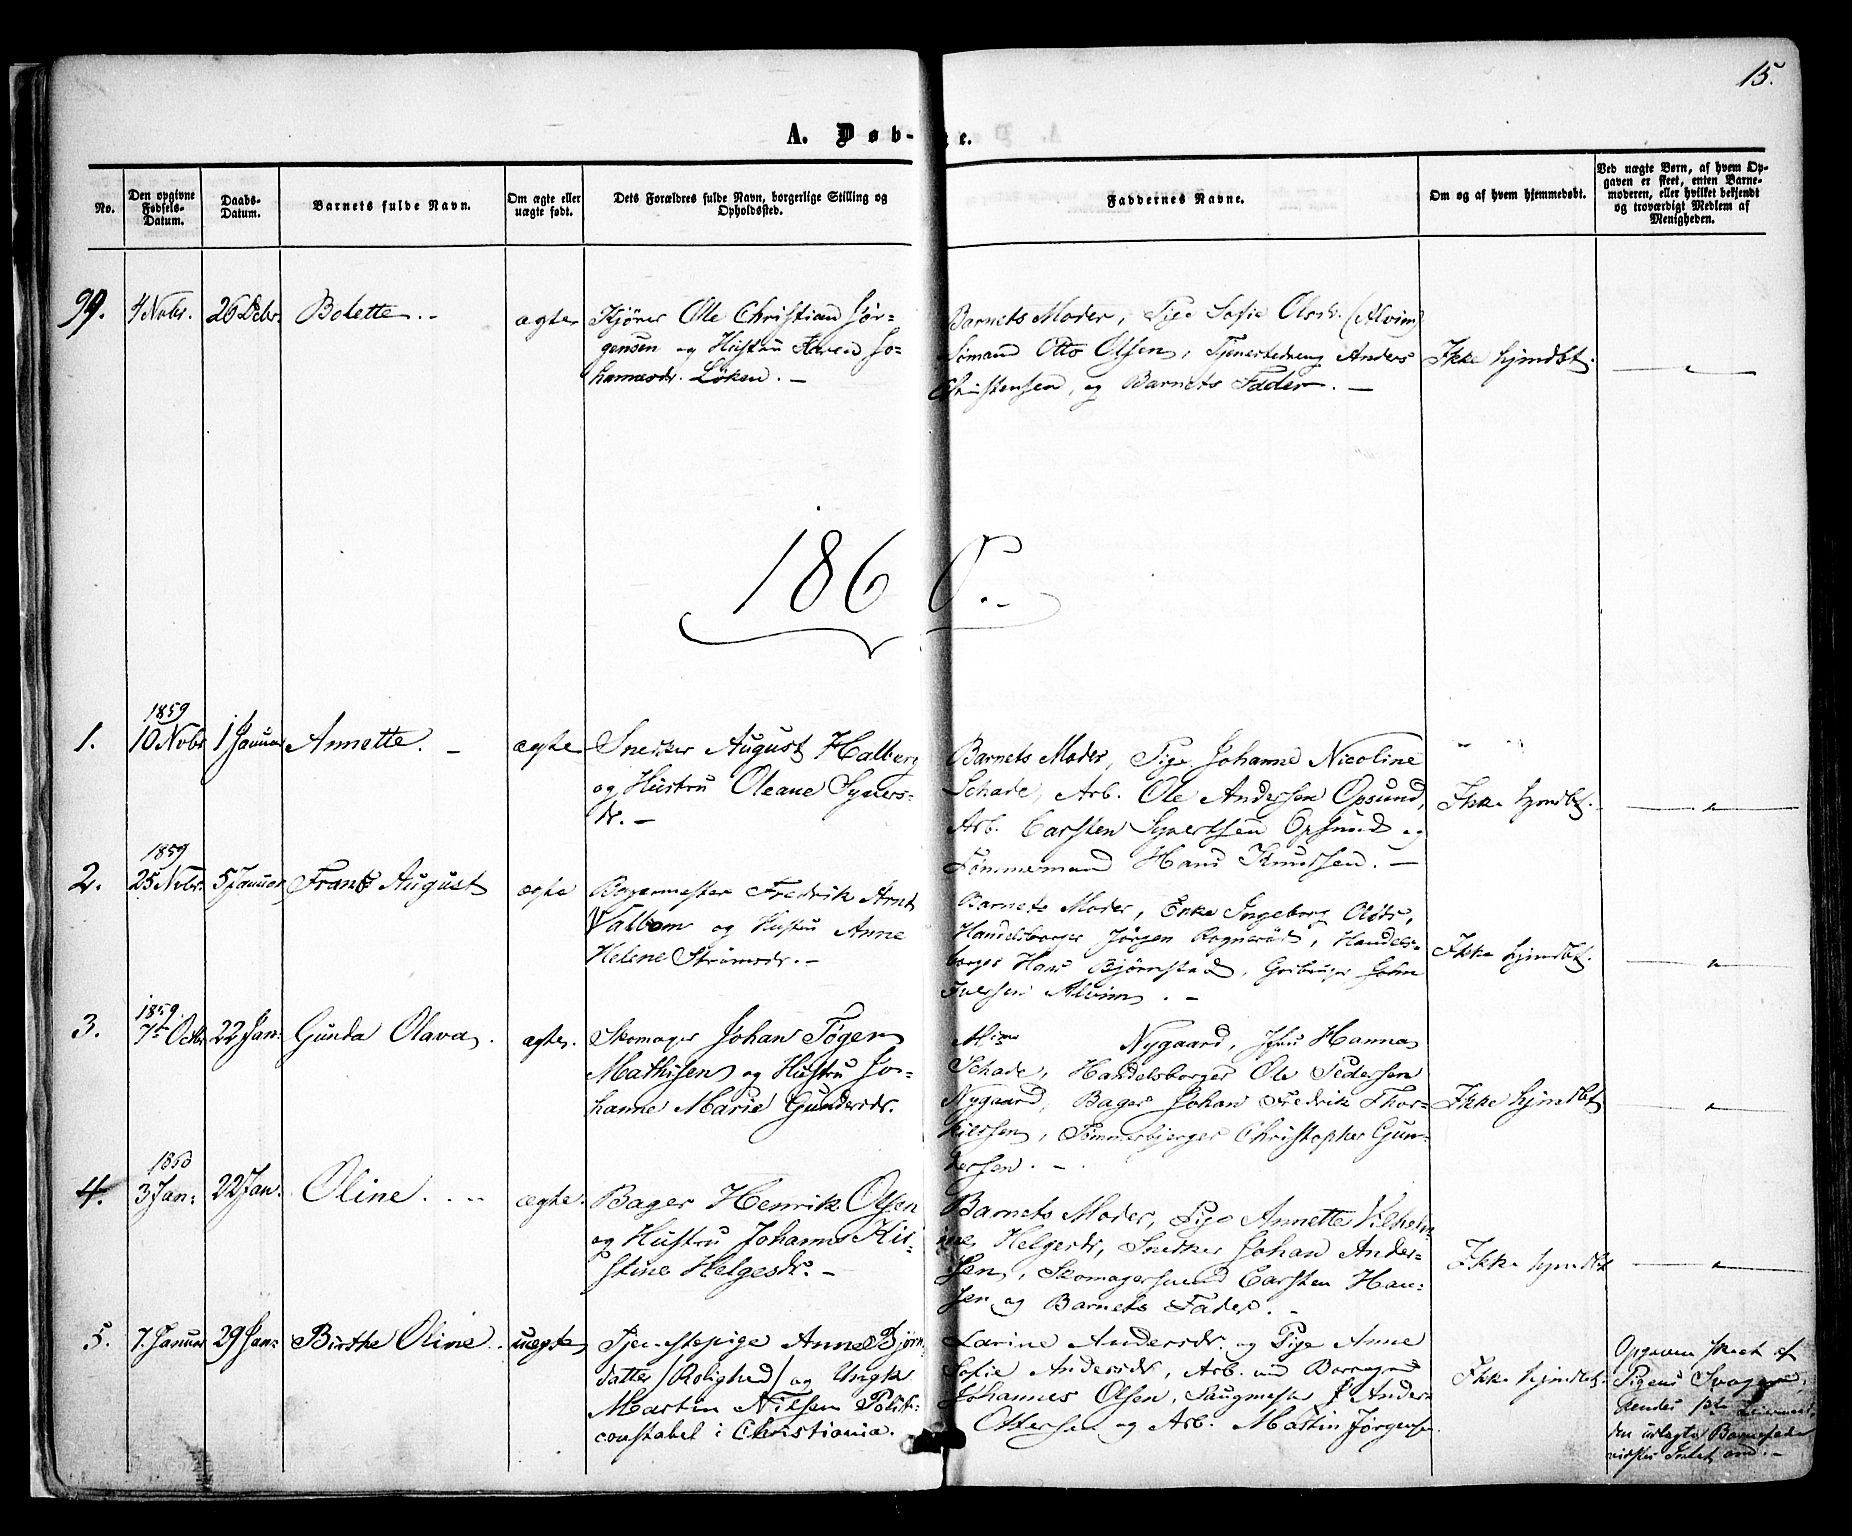 15.
A. Døb-te.
No.
Den opgivne Fødsels-Datum.
Daabs-Datum.
Barnets fulde Navn.
Om ægte eller uægte født.
Dets Forældres fulde Navn, borgerlige Stilling og Opholdssted.
Faddernes Navne.
Om og af hvem hjemmedøbt.
Ved uægte Børn, af hvem Opgaven er skeet, enten Barnemoderen, eller hvilket bekjendt og troværdigt Medlem af Menigheden.
99.
4 Novbr.
26 Decbr.
Bolette. -
ægte
Kjører Ole Christian Jør-
gensen og Hustru Karen Jo-
hannesdr. Løken. -
Barnets Moder, Pige Sofie Olsdr. (Alvim)
Sømand Otto Olsen, Tjenestedreng Anders
Christensen, og Barnets Fader. -
Ikke hjmdbt.
1860.-
1.
1859
10 Novbr
1 Januar
Annette. -
ægte
Snedker August Halberg
og Hustru Oleane Syvers-
dr. -
Barnets Moder, Pige Johanne Nicoline
Schade, Arb. Ole Andersen Opsund,
Arb. Carsten Syvertsen Opsund og
Tømmermand Hans Knudsen. -
Ikke hjmdbt.
2.
1859
25 Novbr.
5 Januar
Frants August
ægte
Bagermester Fredrik Arnt
Valbom og Hustru Anne
Helene Strømsdr. -
Barnets Moder, Enke Ingeborg Olsdr,
Handelsborger Jørgen Rognerød, Handels-
borger Hans Bjørnstad, Gaibruger John
Iversen Alvim. -
Ikke hjmdbt.
3.
1859.
7de Octbr
22 Jan.
Gunda Olava.
ægte.
Skomager Johan Jøgen
Mathisen og Hustru Jo-
hanne Marie Gundersdr.
Nygaard, Jfru Hanna
Schade, Handelsborger Ole Pedersen
Nygaard, Bager Johan Fredrik Thor-
kildsen, Tømmerbjerger Christopher Gun-
dersen. -
Ikke hjmdbt
4.
1860
3 Jan.
22 Jan.
Oline.
ægte.
Bager Henrik Olsen
og Hustru Johanne Kir-
stine Helgesdr. -
Barnets Moder, Pige Annette Vilhelm-
ine Helgesdr, Snedker Johan Ander-
sen, Skomagersvend Carsten Han-
sen og Barnets Fader. -
Ikke hjmdbt
5.
7. Januar
29 Jan.
Birthe Oline.
uægte
Tjenestepige Anne Bjørn-
datter (Rolighed) og Ungk.
Martin Nilsen Politi-
constabel i Christiania.
Larine Andersdr. og Pige Anne
Sofie Andersdr, Arb. ved Borregaard
Johannes Olsen, Saugmester Anders
Ottersen og Arb. Martin Jørgensen
Ikke hjmdbt.
Opgaven skeet af
Pigens Svoger,
den udlagte Barnefader
vidstes Intet om. -